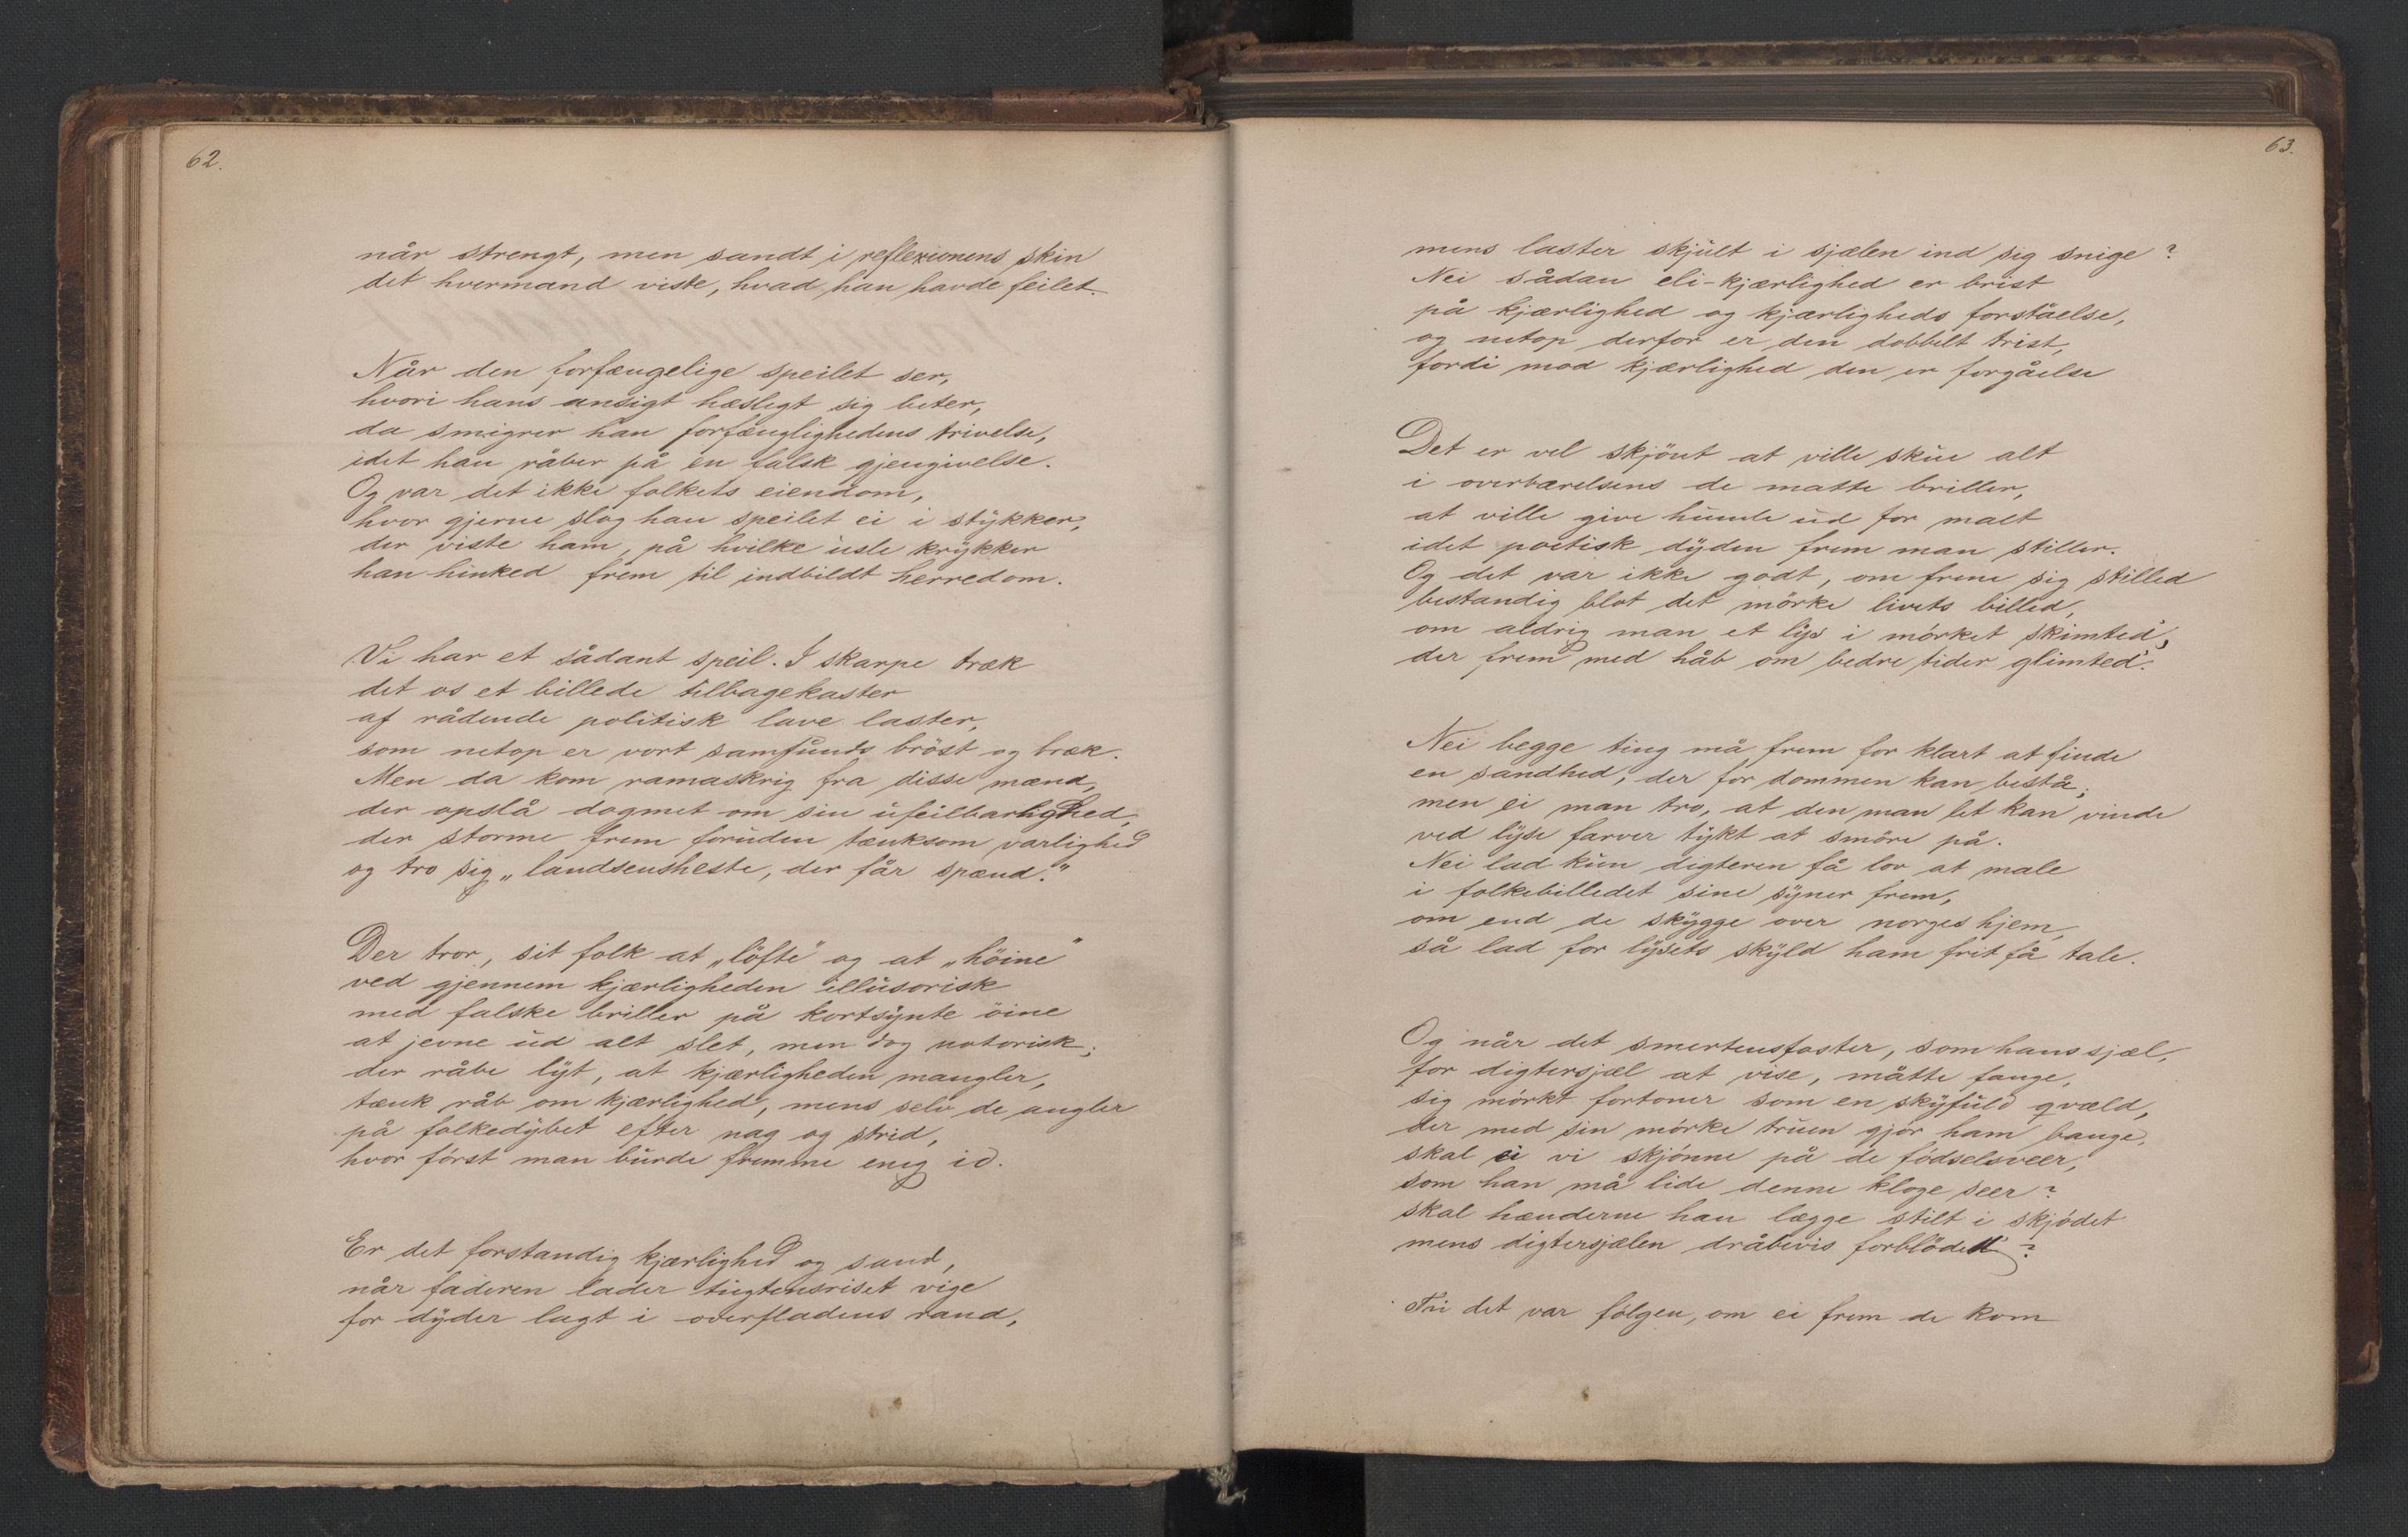 62.
når strengt, men sandt i reflexionens skin
det hvermand viste, hvad han havde feilet.
Når den forfængelige speilet ser,
hvori hans ansigt hæsligt sig beter,
da smigrer han forfænglighedens trivelse,
idet han råber på en falsk gjengivelse.
Og var det ikke folkets eiendom,
hvor gjerne slog han speilet ei i stykker,
der viste ham, på hvilke usle krykker
han hinked frem til indbildt herredom.
Vi har et sådant speil. I skarpe træk
det os et billede tilbagekaster
af rådende politisk lave laster,
som netop er vort samfunds bröst og bræk.
Men da kom ramaskrig fra disse mænd,
der opslå dogmet om sin ufeilbarlighed,
der storme frem foruden tænksom varlighed
og tro sig „landsensheste, der får spænd."
Der tror, sit folk at „löfte" og at „höine"
ved gjennem kjærligheden illusorisk
med falske briller på kortsynte öine
at jevne ud alt slet, men dog notorisk;
der råbe lyt, at kjærligheden mangler,
tænk råb om kjærlighed, mens selv de angler
på folkedybet efter nag og strid,
hvor först man burde fremme enig id.
Er det forstandig kjærlighed og sand,
når faderen lader tugtensriset vige
for dyder lagt i overfladens rand,
63.
mens laster skjult i sjælen ind sig snige?
Nei sådan eli-kjærlighed er brist
på kjærlighed og kjærligheds forståelse,
og netop derfor er den dobbelt trist,
fordi mod kjærlighed den er forgåelse
Det er vel skjönt at ville skue alt
i overbærelsens de matte briller,
at ville give hunde ud for malt
idet poetisk dyden frem man stiller.
Og det var ikke godt, om frem sig stilled
bestandig blot det mörke livets billed,
om aldrig man et lys i mörket skimted,
der frem med håb om bedre tider glimted.
Nei begge ting må frem for klart at finde
en sandhed, der for dommen kan bestå;
men ei man tro, at den man let kan vinde
ved lyse farver tykt at smöre på.
Nei lad kun digteren få lov at male
i folkebilledet sine syner frem,
om end de skygge over norges hjem,
så lad for lysets skyld ham frit få tale.
Og når det smertensfoster, som hans sjæl,
for digtersjæl at vise, måtte fange,
sig mörkt fortoner som en skyfuld qvæld,
der med sin mörke truen gjör ham bange,
skal ei vi skjönne på de födselsveer,
som han må lide denne kloge seer?
skal hænderne han lægge stilt i skjödet
mens digtersjælen dråbevis forblödet?
Thi det var fölgen, om ei frem de kom